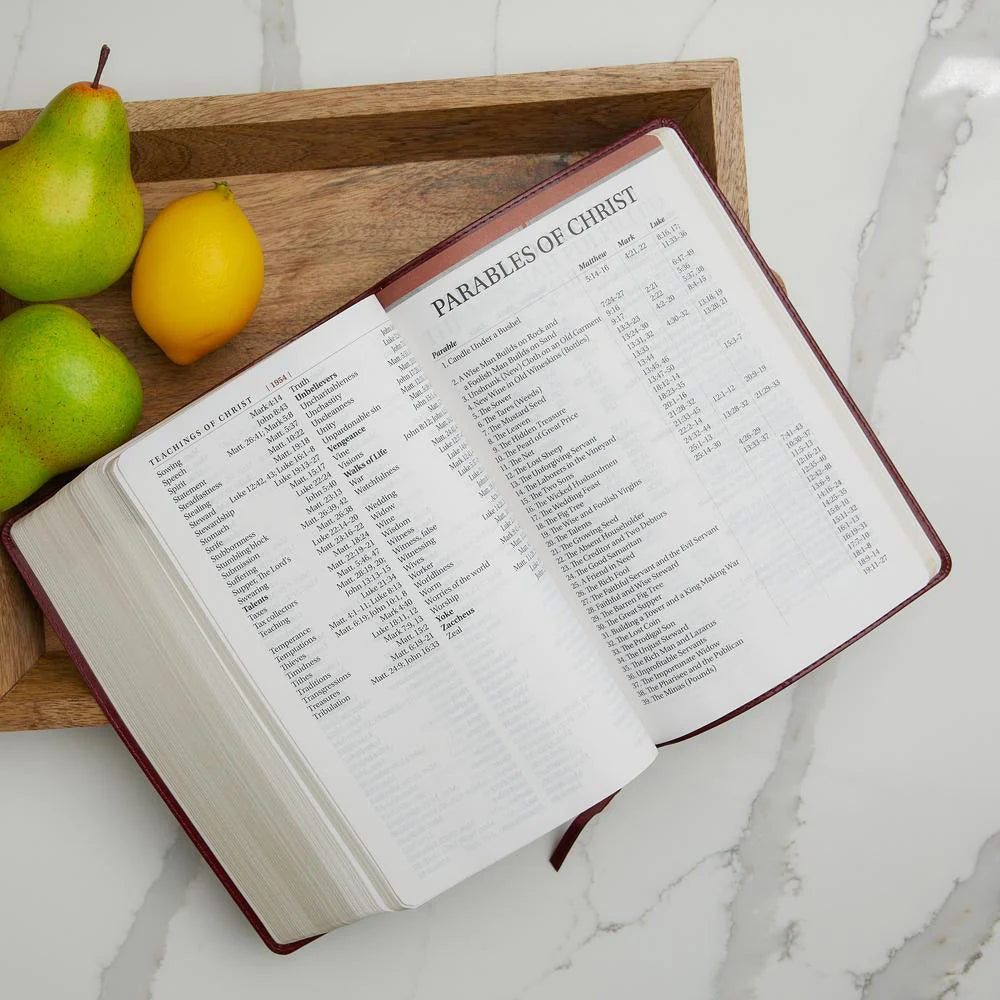 TEACHINGS OF CHRIST | 1954 |
Sowing
Speech
Spirit
Statement
Steadfastness
Stealing
Steward
Stewardship
Stomach
Strife
Stubbornness
Stumbling block
Submission
Suffering
Supper, The Lord's
Swearing
Talents
Taxes
Tax collectors
Teaching
Temperance
Temptations
Thieves
Timidness
Tithes
Traditions
Transgressions
Treasures
Tribulation
Mark 4:14
John 8:43
Matt. 26:41; Mark 5:8
Matt. 5:37
Matt. 10:22
Matt. 19:18
Luke 12:42, 43; Luke 16:1-8
Luke 19:13-27
Matt. 15:17
Luke 22:24
John 5:40
Matt. 23:13
Matt. 26:39, 42
Matt. 26:38
Luke 22:14-20
Matt. 23:16-22
Matt. 18:24
Matt. 22:19-21
Matt. 5:46, 47
Matt. 28:19, 20;
John 13:13-15
Luke 21:34
Matt. 4:1-11; Luke 8:13
Matt. 6:19; John 10:1, 8
Mark 4:40
Luke 18:11, 12
Mark 7:9, 13
Matt. 15:2
Matt. 6:19-21
Matt. 24:9; John 16:33
Truth
Unbelievers
Uncharitableness
Unchastity
Uncleanness
Unity
Unpardonable sin
Vengeance
Vine
Visions
Walks of Life
War
Watchfulness
Wedding
Wine
Wisdom
Witness
Witness, false
Witnessing
Wives
Worker
Worldliness
Worries of the world
Worship
Yoke
Zaccheus
Zeal
PARABLES OF CHRIST
Parable Matthew Mark Luke
1. Candle Under a Bushel 5:14-16 4:21, 22 8:16, 17;
11:33-36
2. A Wise Man Builds on Rock and
a Foolish Man Builds on Sand 7:24-27 6:47-49
3. Unshrunk (New) Cloth on an Old Garment 9:16 2:21 5:36
4. New Wine in Old Wineskins (Bottles) 9:17 2:22 5:37, 38
5. The Sower 13:3-23 4:2-20 8:4-15
6. The Tares (Weeds) 13:24-30
7. The Mustard Seed 13:31, 32 4:30-32 13:18, 19
8. The Leaven 13:33 13:20, 21
9. The Hidden Treasure 13:44
10. The Pearl of Great Price 13:45, 46
11. The Net 13:47-50
12. The Lost Sheep 18:12-14 15:3-7
13. The Unforgiving Servant 18:23-35
14. The Laborers in the Vineyard 20:1-16
15. The Two Sons 21:28-32
16. The Wicked Husbandmen 21:33-45 12:1-12 20:9-19
17. The Wedding Feast 22:2-14
18. The Fig Tree 24:32-44 13:28-32 21:29-33
19. The Wise and Foolish Virgins 25:1-13
20. The Talents 25:14-30
21. The Growing Seed 4:26-29
22. The Absent Householder 13:33-37
23. The Creditor and Two Debtors 7:41-43
24. The Good Samaritan 10:30-37
25. A Friend in Need 11:5-13
26. The Rich Fool 12:16-21
27. The Faithful Servant and the Evil Servant 12:35-40
28. Faithful and Wise Steward 12:42-48
29. The Barren Fig Tree 13:6-9
30. The Great Supper 14:16-24
31. Building a Tower and a King Making War 14:25-35
32. The Lost Coin 15:8-10
33. The Prodigal Son 15:11-32
34. The Unjust Steward 16:1-13
35. The Rich Man and Lazarus 16:19-31
36. Unprofitable Servants 17:7-10
37. The Importunate Widow 18:1-8
38. The Pharisee and the Publican 18:9-14
39. The Minas (Pounds) 19:11-27